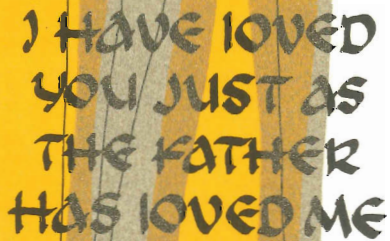 I HAVE LOVED
YOU JUST AS
THE FATHER
HAS LOVED ME